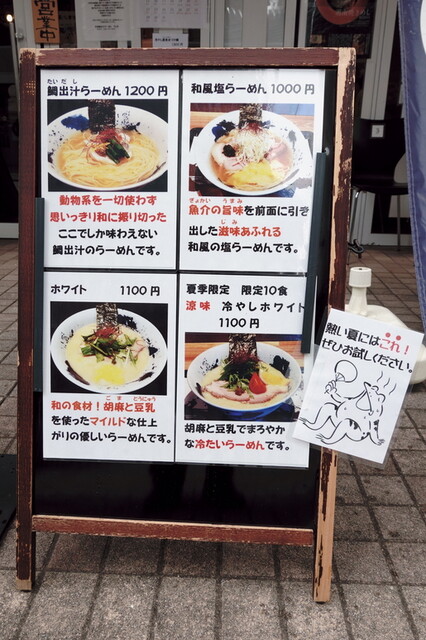 営業中
たいだし
鯛出汁らーめん 1200 円
動物系を一切使わず
思いっきり和に振り切った
ここでしか味わえない
鯛出汁のらーめんです。
和風塩らーめん 1000 円
ぎょかい うまみ
魚介の旨味を前面に引き
じみ
出した滋味あふれる
和風の塩らーめんです。
ホワイト 1100 円
ごま とうにゅう
和の食材！胡麻と豆乳
を使ったマイルドな仕上
がりの優しいらーめんです。
夏季限定 限定10食
涼味 冷やしホワイト
1100 円
胡麻と豆乳でまろやか
な冷たいらーめんです。
熱い夏にはこれ！
ぜひお試しください。